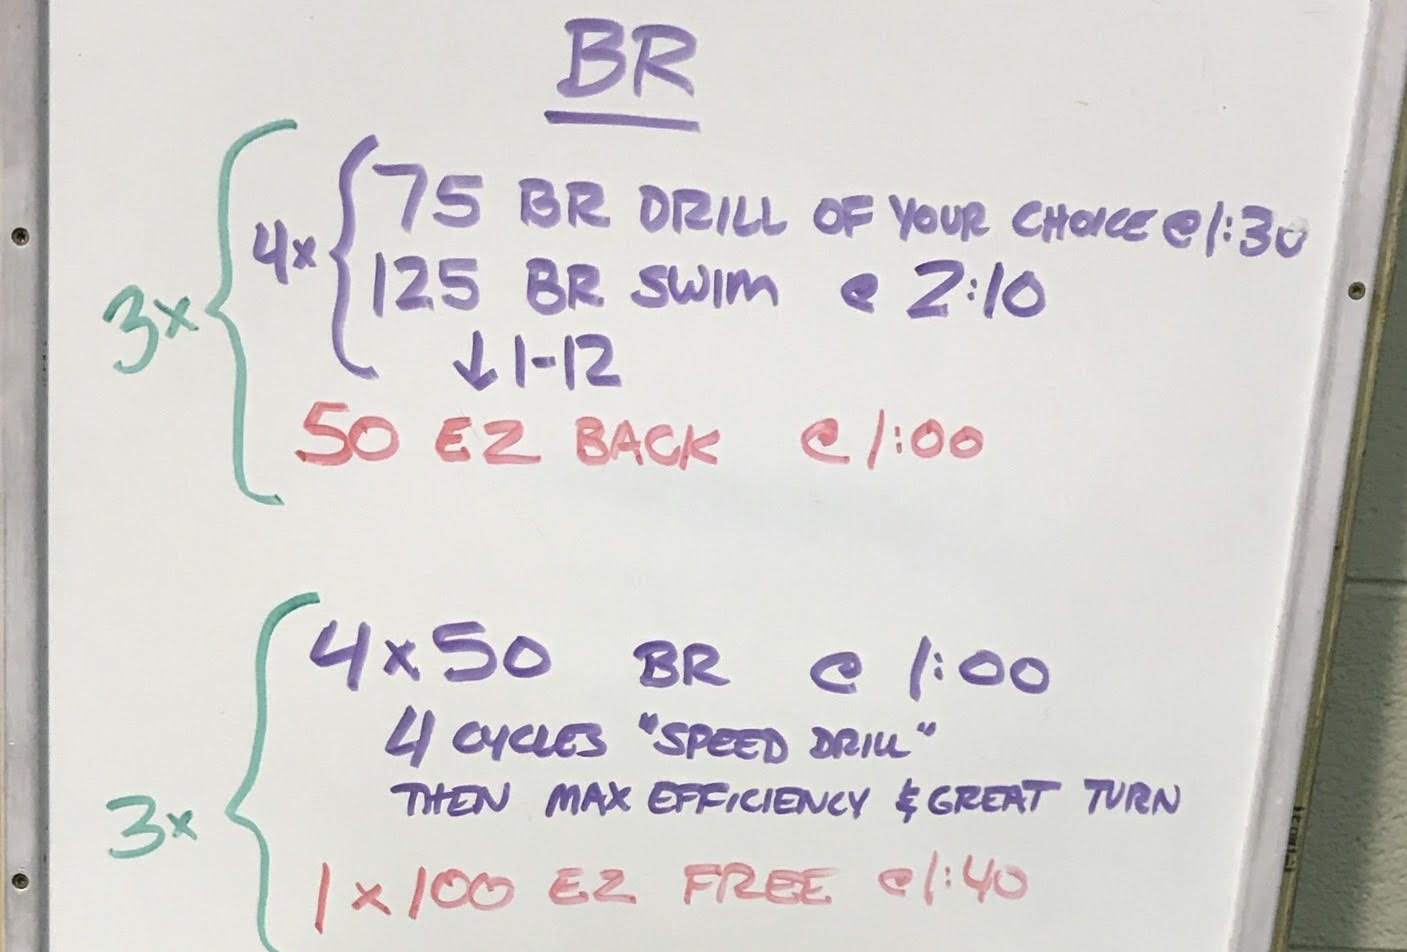 BR
3x
4x
75 BR DRILL OF YOUR CHOICE @ 1:30
125 BR SWIM @ 2:10
↓ 1-12
50 EZ BACK @ 1:00
3x
4x50 BR @ 1:00
4 CYCLES "SPEED DRILL"
THEN MAX EFFICIENCY & GREAT TURN
1x100 EZ FREE @ 1:40